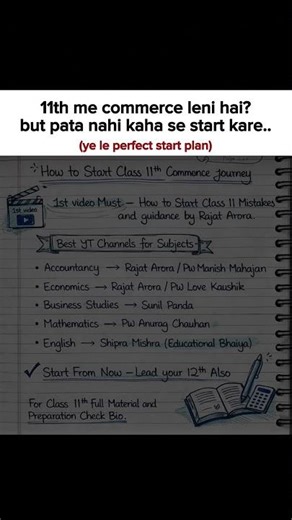 11th me commerce leni hai?
but pata nahi kaha se start kare..
(ye le perfect start plan)
How to Start Class 11th Commerce Journey
1st video
1st video Must - How to Start Class 11 Mistakes
and guidance by Rajat Arora.
Best YT Channels for Subjects
• Accountancy → Rajat Arora / PW Manish Mahajan
• Economics → Rajat Arora / PW Love Kaushik
• Business Studies → Sunil Panda
• Mathematics → PW Anurag Chauhan
• English → Shipra Mishra (Educational Bhaiya)
✓ Start From Now - Lead your 12th Also
For Class 11th Full Material and
Preparation Check Bio.